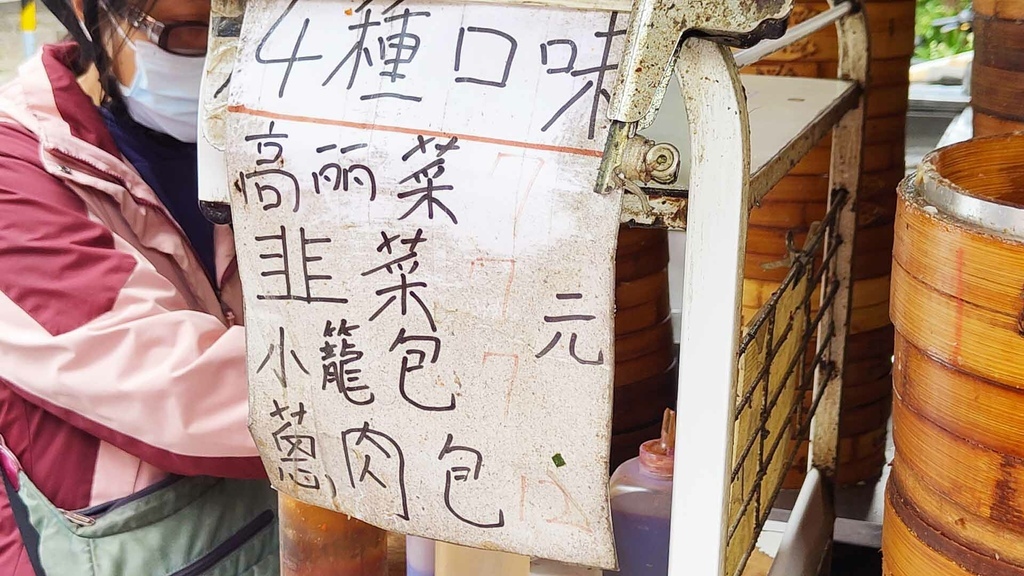 4種口味
高丽菜 7
韭菜 7
元
小籠包 7
蔥肉包 12